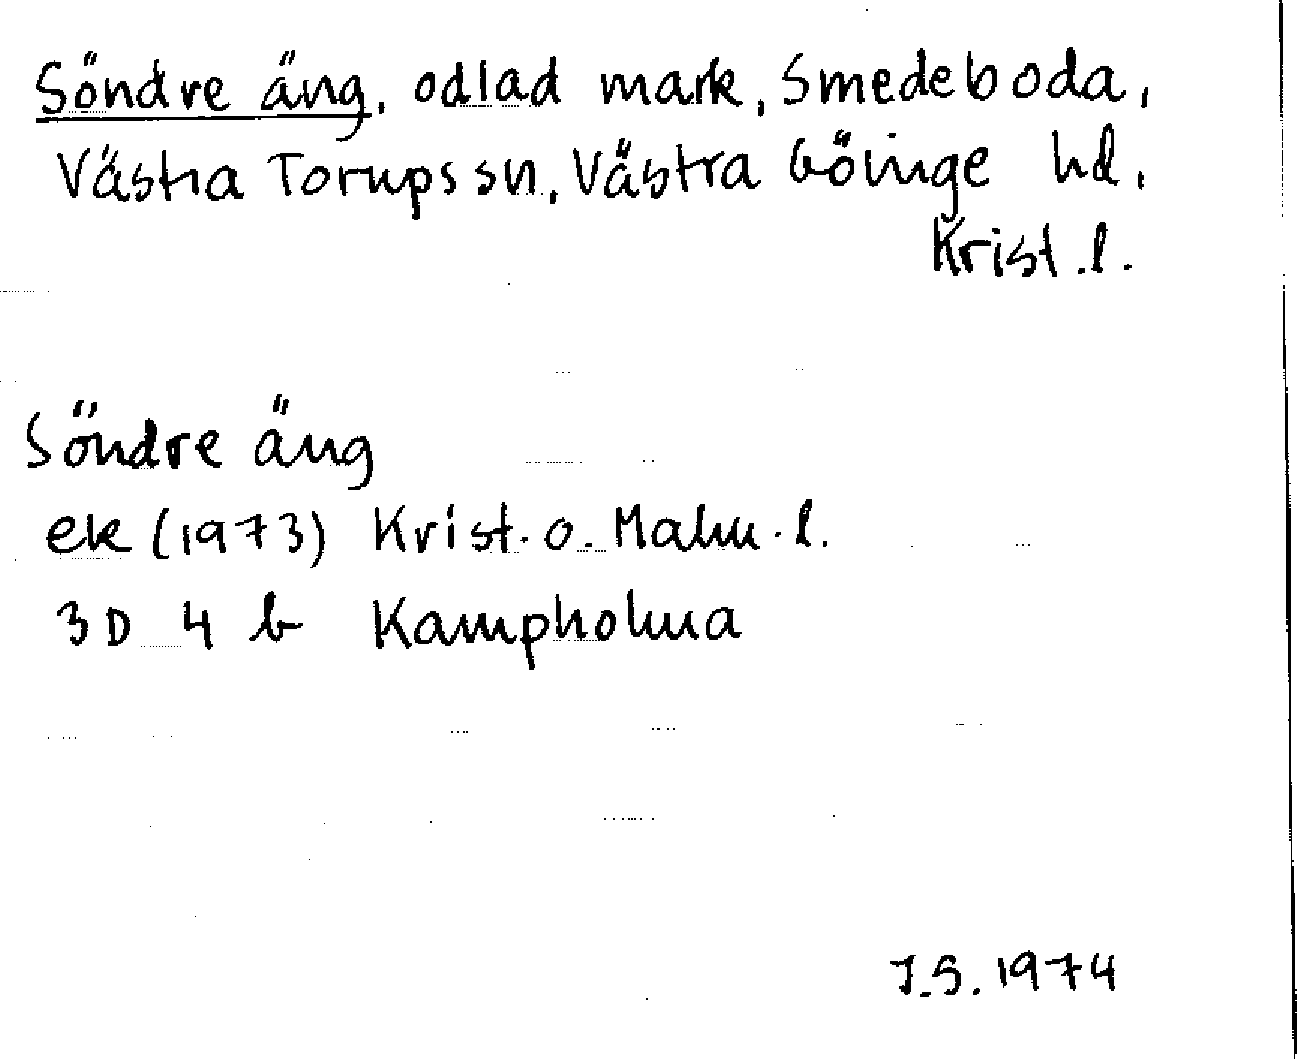 Söndre äng, odlad mark, Smedeboda,
Västra Torups sn, Västra Göinge hd,
Krist.l.
Söndre äng
ek (1973) Krist. o. Malm.l.
3D 4 b Kampholma
J.S. 1974